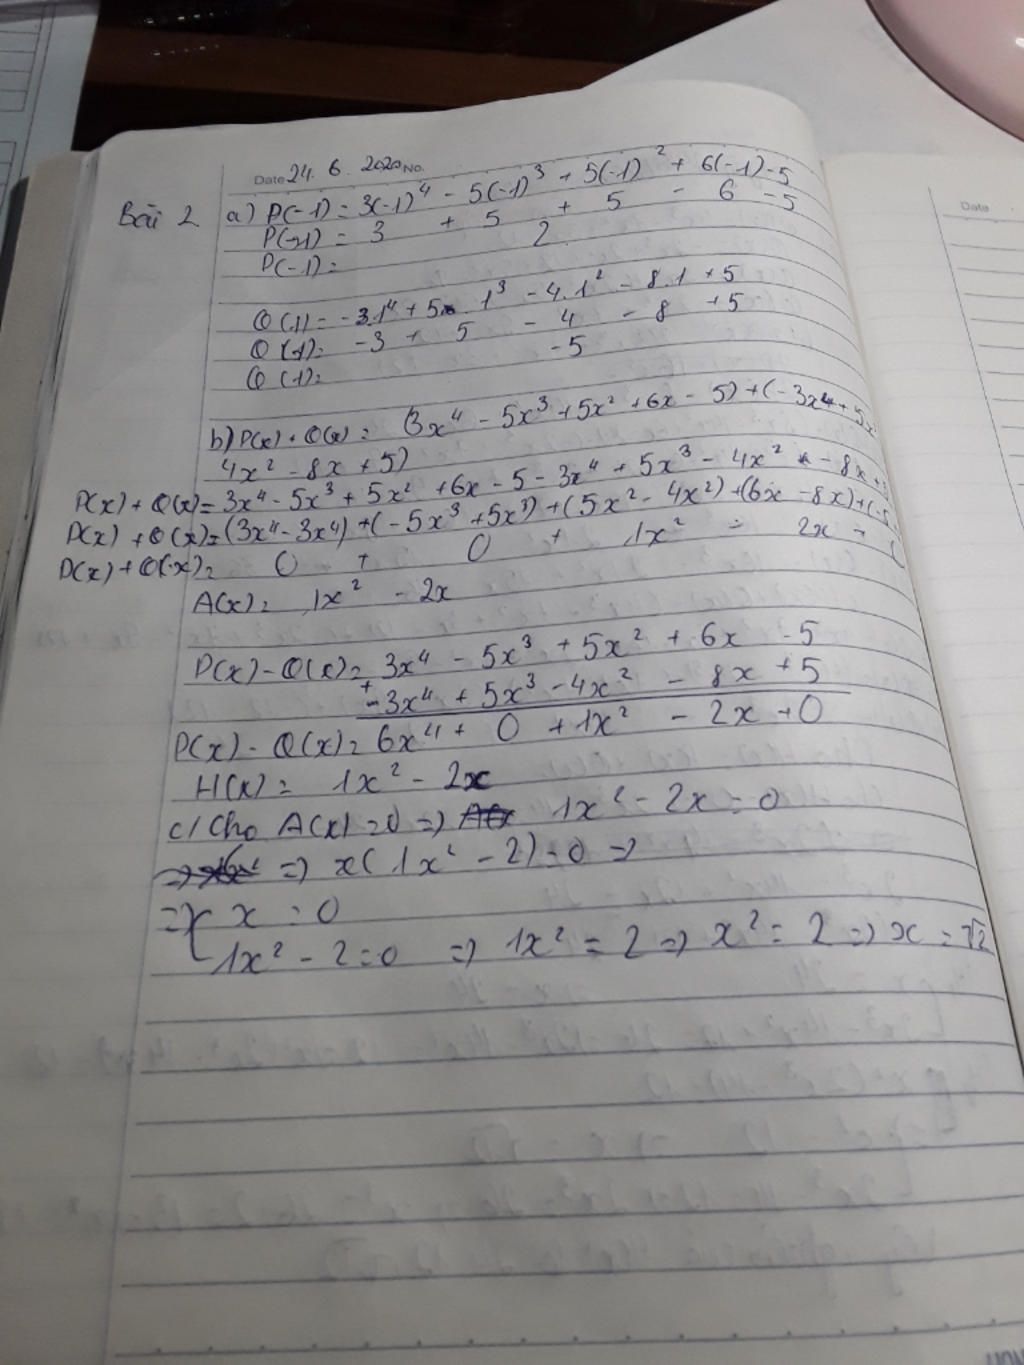 Date 24. 6. 2020 No.
Bài 2 a) P(-1) = 3(-1)⁴ - 5(-1)³ + 5(-1)² + 6(-1) - 5
P(-1) = 3 + 5 + 5 - 6 - 5
P(-1) = 2
Q(1) = -3.1⁴ + 5. 1³ - 4.1² - 8.1 + 5
Q(1) = -3 + 5 - 4 - 8 + 5
Q(1) = -5
b) P(x) + Q(x) = (3x⁴ - 5x³ + 5x² + 6x - 5) + (-3x⁴ + 5x
4x² - 8x + 5)
P(x) + Q(x) = 3x⁴ - 5x³ + 5x² + 6x - 5 - 3x⁴ + 5x³ - 4x² - 8x +
P(x) + Q(x) = (3x⁴ - 3x⁴) + (-5x³ + 5x³) + (5x² - 4x²) + (6x - 8x) + (-5
P(x) + Q(x) = 0 + 0 + 1x² - 2x +
A(x) = 1x² - 2x
P(x) - Q(x) = 3x⁴ - 5x³ + 5x² + 6x - 5
+ -3x⁴ + 5x³ - 4x² - 8x + 5
P(x) - Q(x) = 6x⁴ + 0 + 1x² - 2x + 0
H(x) = 1x² - 2x
c/ Cho A(x) = 0 => 1x² - 2x = 0
=> x(1x² - 2) = 0 =>
=> x = 0
1x² - 2 = 0 => 1x² = 2 => x² = 2 => x = √2
Date